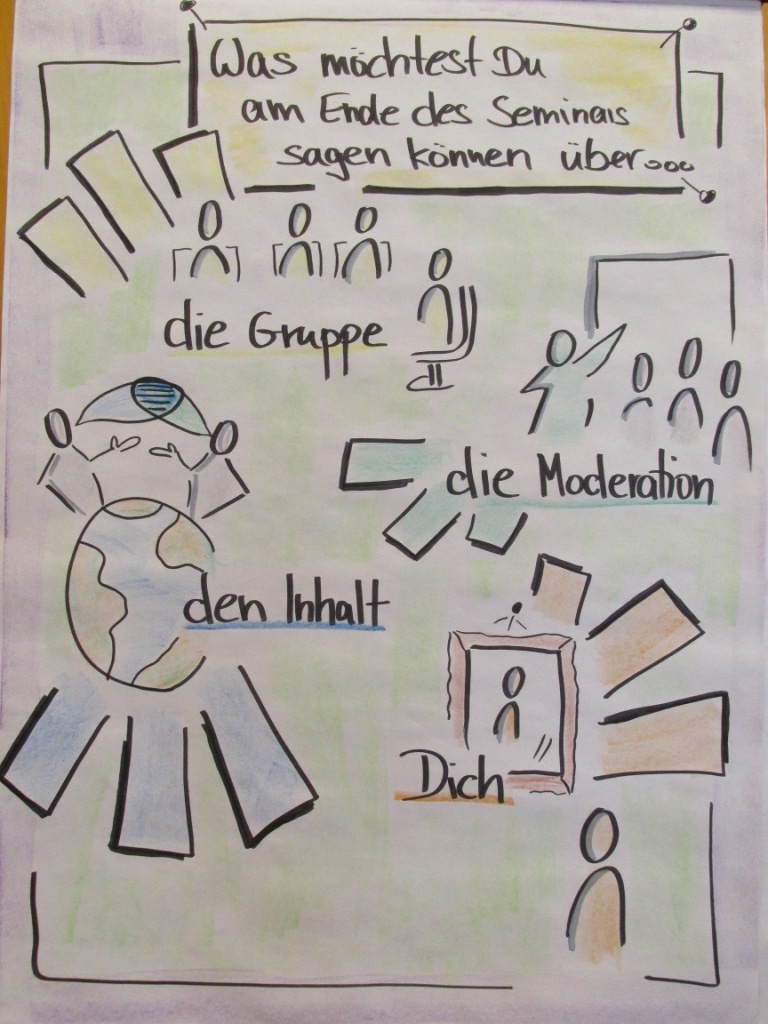 Was möchtest Du
am Ende des Seminars
sagen können über...
die Gruppe
die Moderation
den Inhalt
Dich